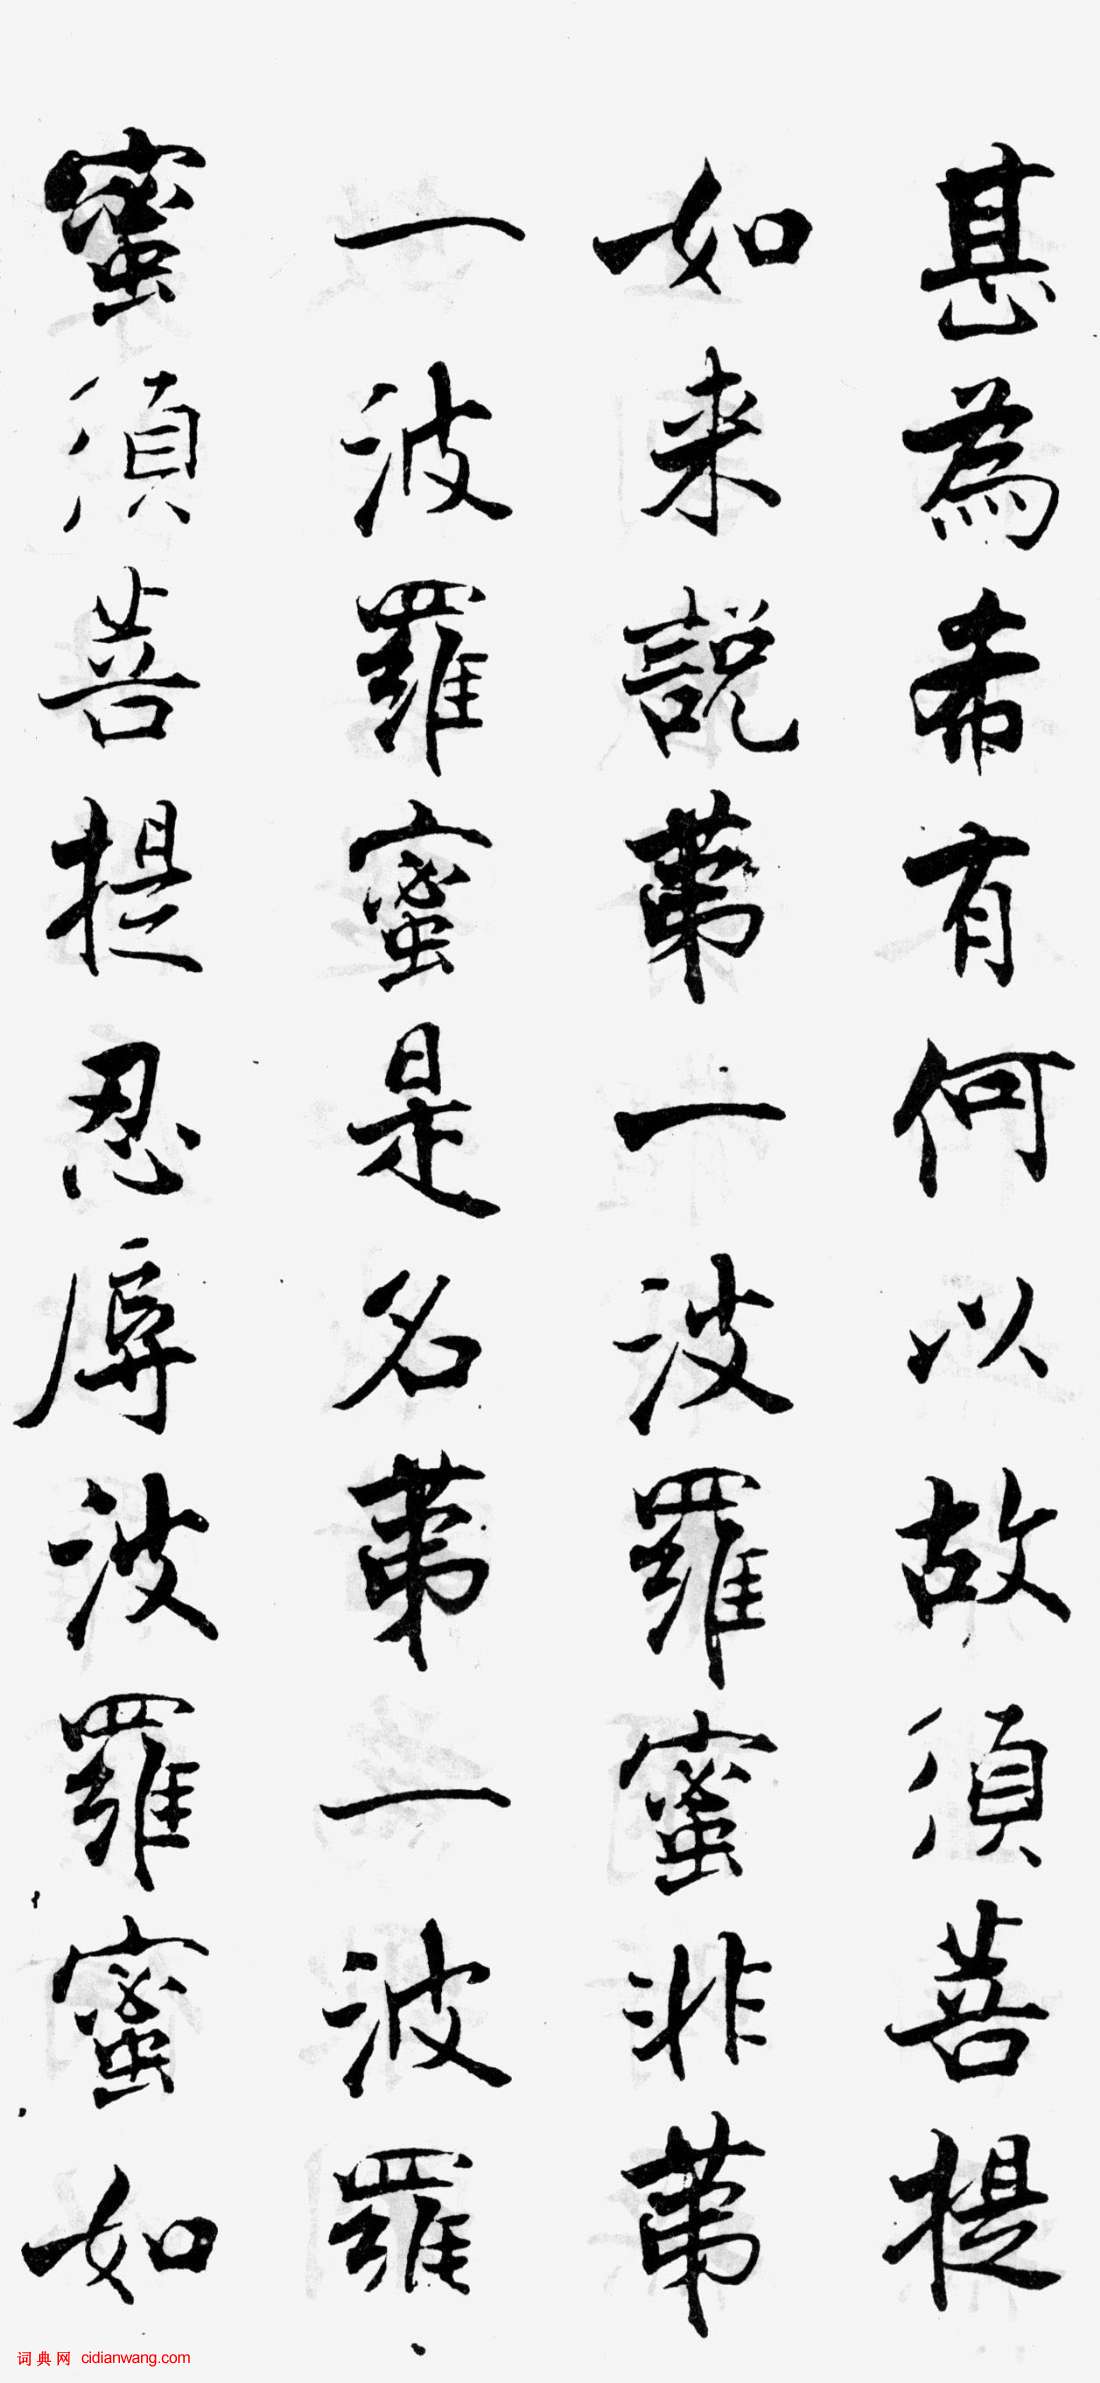 甚為希有何以故須菩提
如来說苐一波羅蜜非苐
一波羅蜜是名苐一波羅
蜜須菩提忍辱波羅蜜如
词典网 cidianwang.com